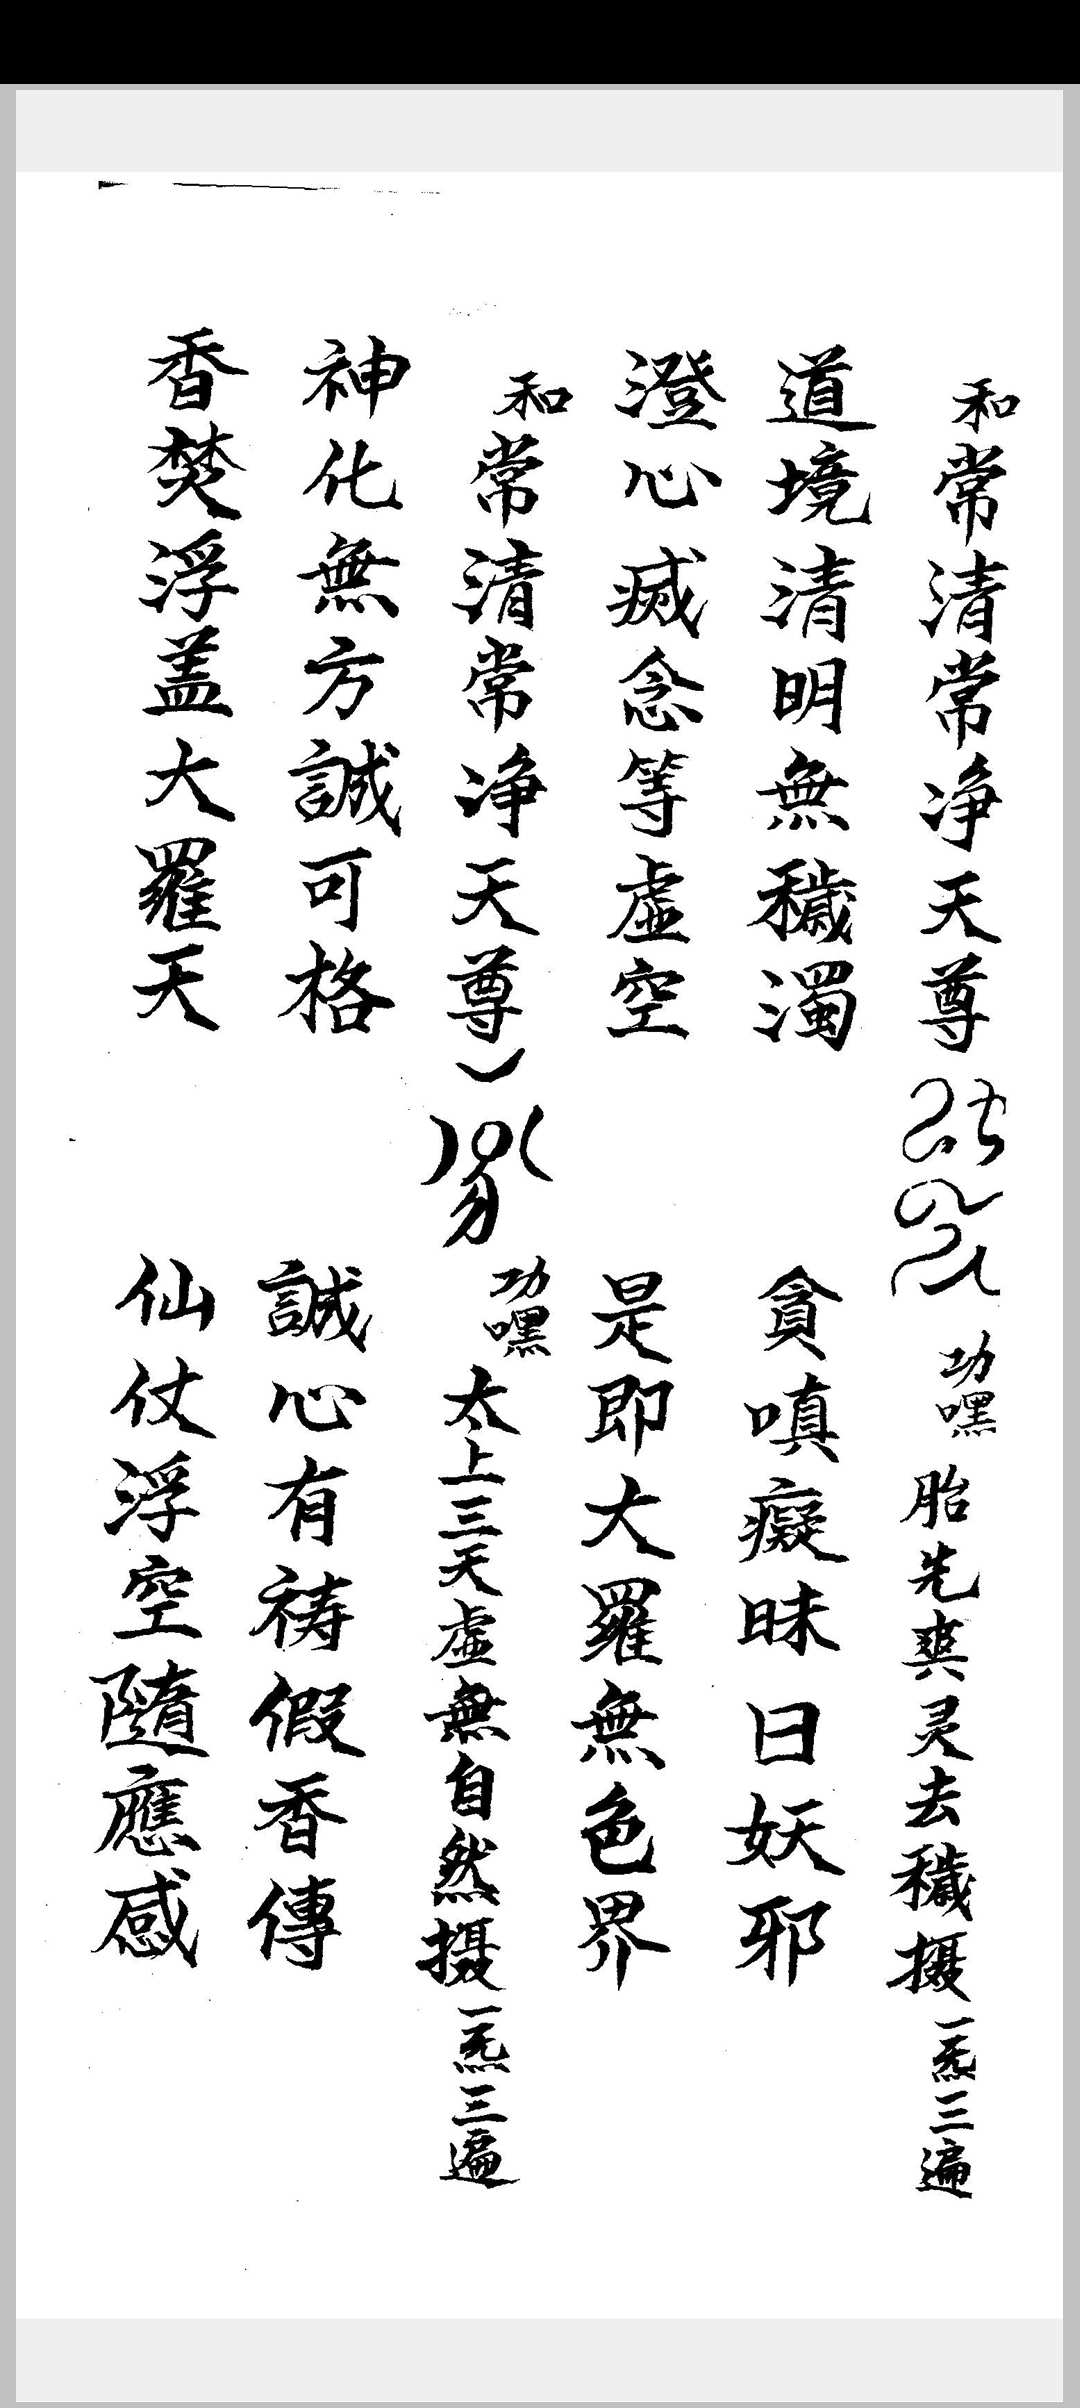 和常清常净天尊 功嘿 胎先爽灵去穢摄一炁三遍
道境清明無穢濁 貪嗔癡昧曰妖邪
澄心㓕念等虛空 是即大羅無色界
和常清常净天尊 功嘿 太上三天虛無自然摄一炁三遍
神化無方誠可格 誠心有祷假香傳
香焚浮盖大羅天 仙仗浮空隨應感